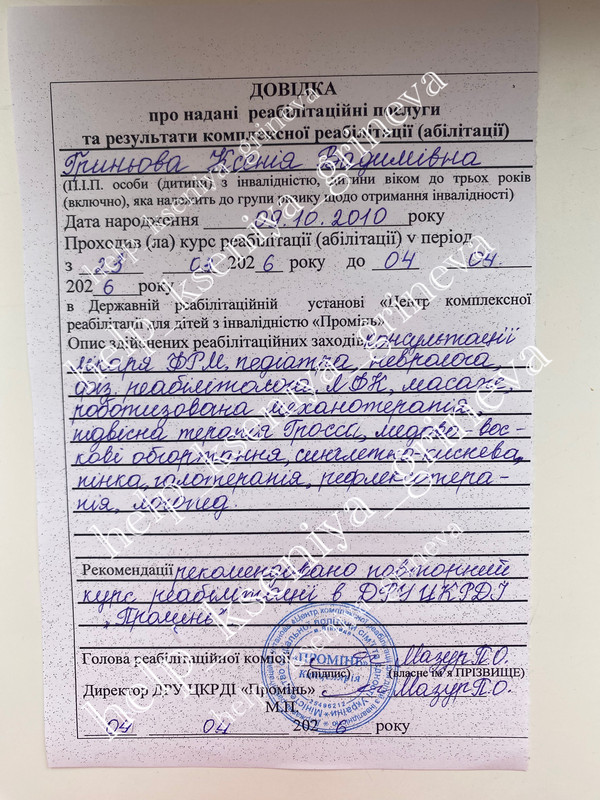 ДОВІДКА
про надані реабілітаційні послуги
та результати комплексної реабілітації (абілітації)
Гриньова Ксенія Вадимівна
(П.І.П. особи (дитини) з інвалідністю, дитини віком до трьох років
(включно), яка належить до групи ризику щодо отримання інвалідності)
Дата народження 09.10.2010 року
Проходив (ла) курс реабілітації (абілітації) у період
з 23 03 2026 року до 04 04.
2026 року
в Державній реабілітаційній установі «Центр комплексної
реабілітації для дітей з інвалідністю «Промінь»
Опис здійснених реабілітаційних заходів консультації
лікаря ФРМ, педіатра, невролога,
фіз. реабілітолога ЛФК, масаж,
роботизована механотерапія,
підвісна терапія Гросса, медово-вос-
кові обгортання, синглетно-киснева
пінка, галотерапія, рефлексотера-
пія, логопед.
Рекомендації рекомендовано повторний
курс реабілітації в ДРУ ЦКРДІ
„Промінь"
Голова реабілітаційної комісії Мазур П.О.
(підпис) (власне ім'я ПРІЗВИЩЕ)
Директор ДРУ ЦКРДІ «Промінь» Мазур П.О.
М.П.
04 04 2026 року
«ПРОМІНЬ»
help_kseniya_grineva